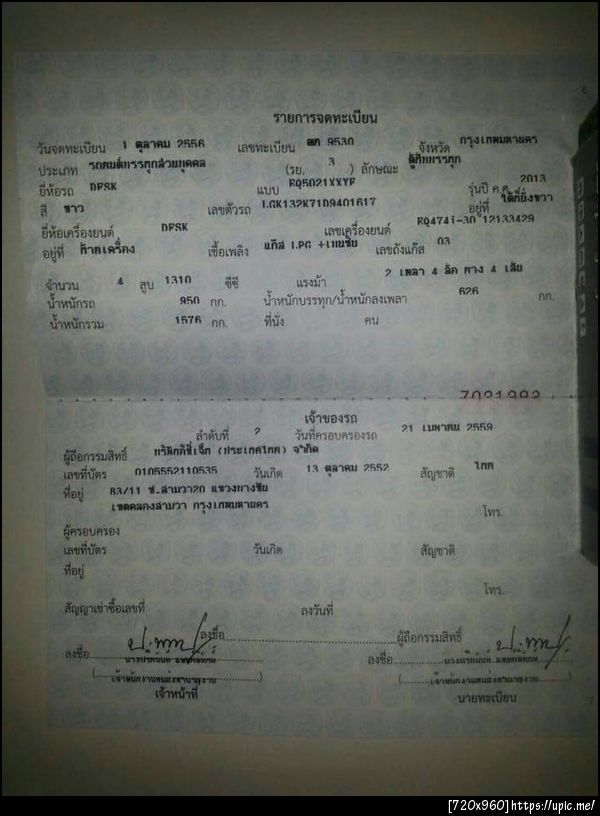 รายการจดทะเบียน
วันจดทะเบียน 1 ตุลาคม 2556 เลขทะเบียน 9530 จังหวัด กรุงเทพมหานคร
ประเภท รถยนต์บรรทุกส่วนบุคคล (รย. 3 ) ลักษณะ ตู้ทึบบรรทุก
ยี่ห้อรถ DFSK แบบ EQ5021XXYF รุ่นปี ค.ศ. 2013
สี ขาว เลขตัวรถ LGK132K71D9401617 อยู่ที่ ใต้ที่นั่งขวา
ยี่ห้อเครื่องยนต์ DFSK เลขเครื่องยนต์ EQ474i-30 12133429
อยู่ที่ ท้ายเครื่อง เชื้อเพลิง แก๊ส LPG +เบนซิน เลขถังแก๊ส 03
จำนวน 4 สูบ 1310 ซีซี แรงม้า 2 เพลา 4 ล้อ ยาง 4 เส้น
น้ำหนักรถ 950 กก. น้ำหนักบรรทุก/น้ำหนักลงเพลา 626 กก.
น้ำหนักรวม 1576 กก. ที่นั่ง คน
เจ้าของรถ
ลำดับที่ 2 วันที่ครอบครองรถ 21 เมษายน 2559
ผู้ถือกรรมสิทธิ์ (ประเทศไทย) จำกัด
เลขที่บัตร 0105552110535 วันเกิด 13 ตุลาคม 2552 สัญชาติ ไทย
ที่อยู่ 83/11 ซ.สามวา20 แขวงบางชัน
เขตคลองสามวา กรุงเทพมหานคร โทร.
ผู้ครอบครอง
เลขที่บัตร วันเกิด สัญชาติ
ที่อยู่
โทร.
สัญญาเช่าซื้อเลขที่ ลงวันที่
ลงชื่อ ผู้ถือกรรมสิทธิ์
ลงชื่อ ลงชื่อ
(เจ้าพนักงานขนส่งชำนาญงาน) (เจ้าพนักงานขนส่งชำนาญงาน)
เจ้าหน้าที่ นายทะเบียน
[720x960] https://upic.me/